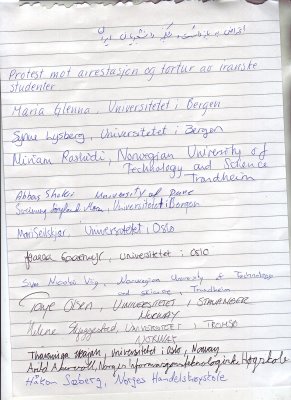 اعتراض به بازداشت و شکنجه دانشجویان ایران
Protest mot arrestasjon og tortur av iranske
studenter
Maria Glenna, Universitetet i Bergen
Synne Lysberg, Universitetet i Bergen
Miriam Rashidi, Norwegian University of
Technology and Science
Trondheim
Abbas Shakri University of
Universitetet i Bergen
Mari Seilskjær, Universitetet i Oslo
universitetet i OSLO
Norwegian University of Technology
and science Trondheim
Tonje Olsen, UNIVERSITETET I STAVANGER
NORWAY
Helene Skjeggestad, UNIVERSITETET I TROMSØ
NORWAY
Universitetet i Oslo, Norway
Norges Informasjonsteknologiske Høgskole
Håkon Søberg, Norges Handelshøyskole